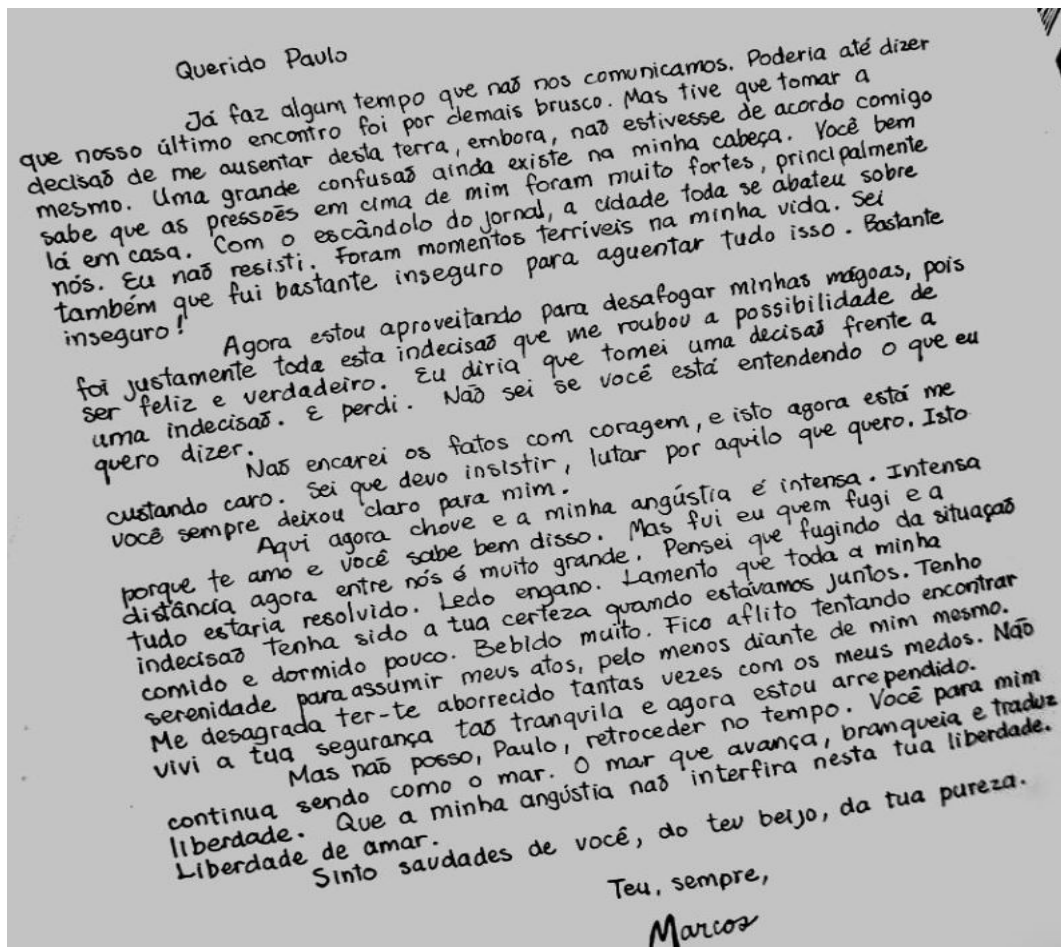 Querido Paulo
Já faz algum tempo que naõ nos comunicamos. Poderia até dizer
que nosso último encontro foi por demais brusco. Mas tive que tomar a
decisaõ de me ausentar desta terra, embora, naõ estivesse de acordo comigo
mesmo. Uma grande confusaõ ainda existe na minha cabeça. Você bem
sabe que as pressoẽs em cima de mim foram muito fortes, principalmente
lá em casa. Com o escândolo do jornal, a cidade toda se abateu sobre
nós. Eu naõ resisti. Foram momentos terríveis na minha vida. Sei
também que fui bastante inseguro para aguentar tudo isso. Bastante
inseguro!
Agora estou aproveitando para desafogar minhas mágoas, pois
foi justamente toda esta indecisaõ que me roubou a possibilidade de
ser feliz e verdadeiro. Eu diria que tomei uma decisaõ frente a
uma indecisaõ. E perdi. Naõ sei se você está entendendo o que eu
quero dizer.
Naõ encarei os fatos com coragem, e isto agora está me
custando caro. Sei que devo insistir, lutar por aquilo que quero. Isto
você sempre deixou claro para mim.
Aqui agora chove e a minha angústia é intensa. Intensa
porque te amo e você sabe bem disso. Mas fui eu quem fugi e a
distância agora entre nós é muito grande. Pensei que fugindo da situaçaõ
tudo estaria resolvido. Ledo engano. Lamento que toda a minha
indecisaõ tenha sido a tua certeza quando estávamos juntos. Tenho
comido e dormido pouco. Bebido muito. Fico aflito tentando encontrar
serenidade para assumir meus atos, pelo menos diante de mim mesmo.
Me desagrada ter-te aborrecido tantas vezes com os meus medos. Não
vivi a tua segurança taõ tranquila e agora estou arrependido.
Mas naõ posso, Paulo, retroceder no tempo. Você para mim
continua sendo como o mar. O mar que avança, branqueia e traduz
liberdade. Que a minha angústia naõ interfira nesta tua liberdade.
Liberdade de amar.
Sinto saudades de você, do teu beijo, da tua pureza.
Teu, sempre,
Marcos